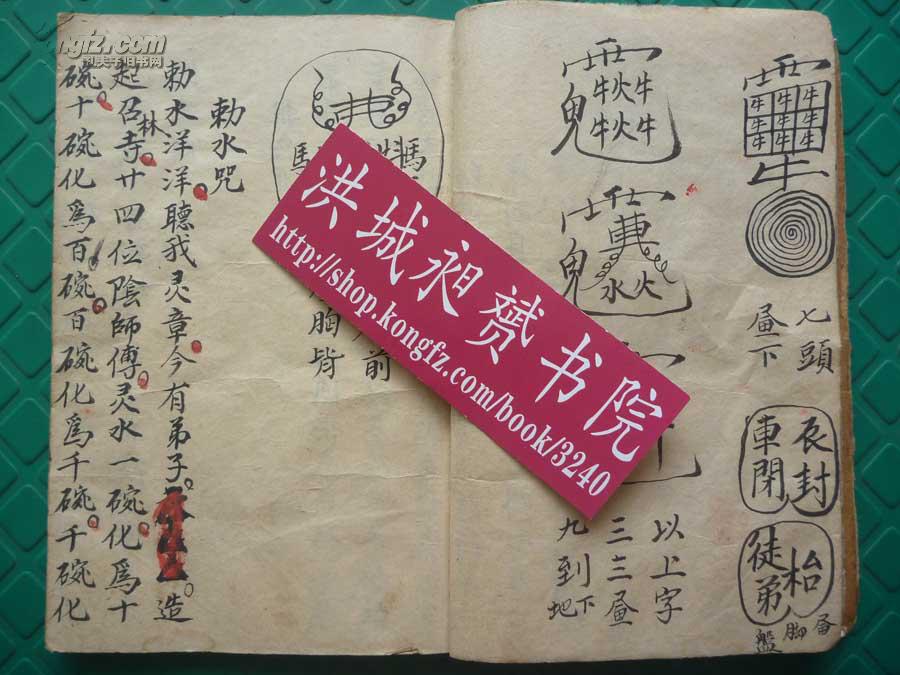 ongfz.com
孔夫子旧书网
牛牛牛
牛牛牛
牛牛牛
牛
七頭
下
封
車閉
徒弟
枱
脚
盤
牛火牛
牛火牛
鬼
鬼
水火
以上字
三三
九到地下
馬
馬
前
胸背
勅水咒
勅水洋洋聽我灵章今有弟子
造
起召林寺廿四位陰師傅灵水一碗化爲十
碗十碗化爲百碗百碗化爲千碗千碗化
洪城昶赟书院
http://shop.kongfz.com/book/3240